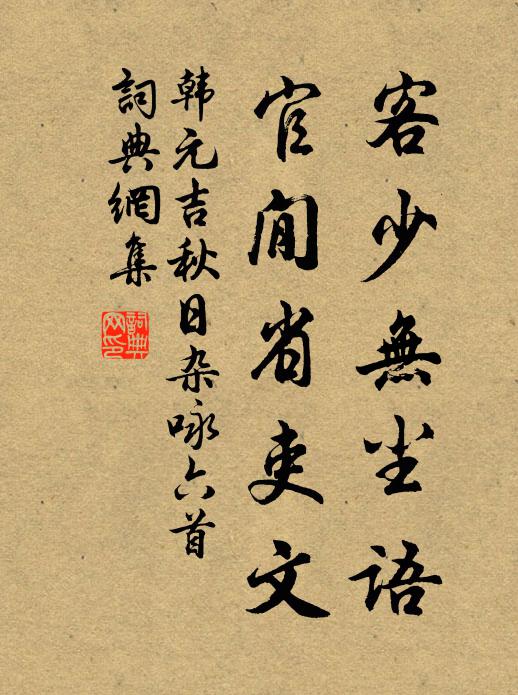 客少無尘語
官閒省吏文
韩元吉秋日杂咏六首
詞典網集
詞典网印